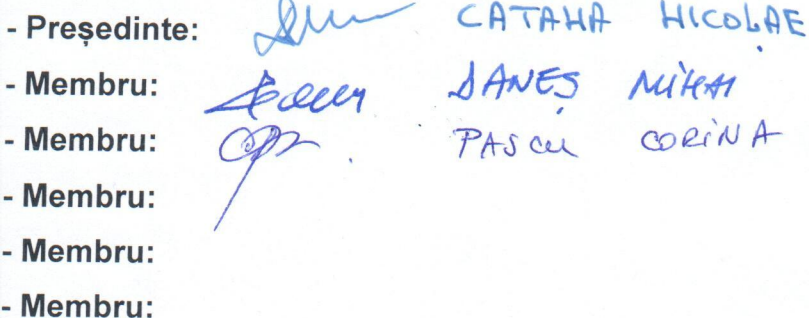 - Președinte: CATANA NICOLAE
- Membru: DANEȘ MIHAI
- Membru: PASCU CORINA
- Membru:
- Membru:
- Membru: